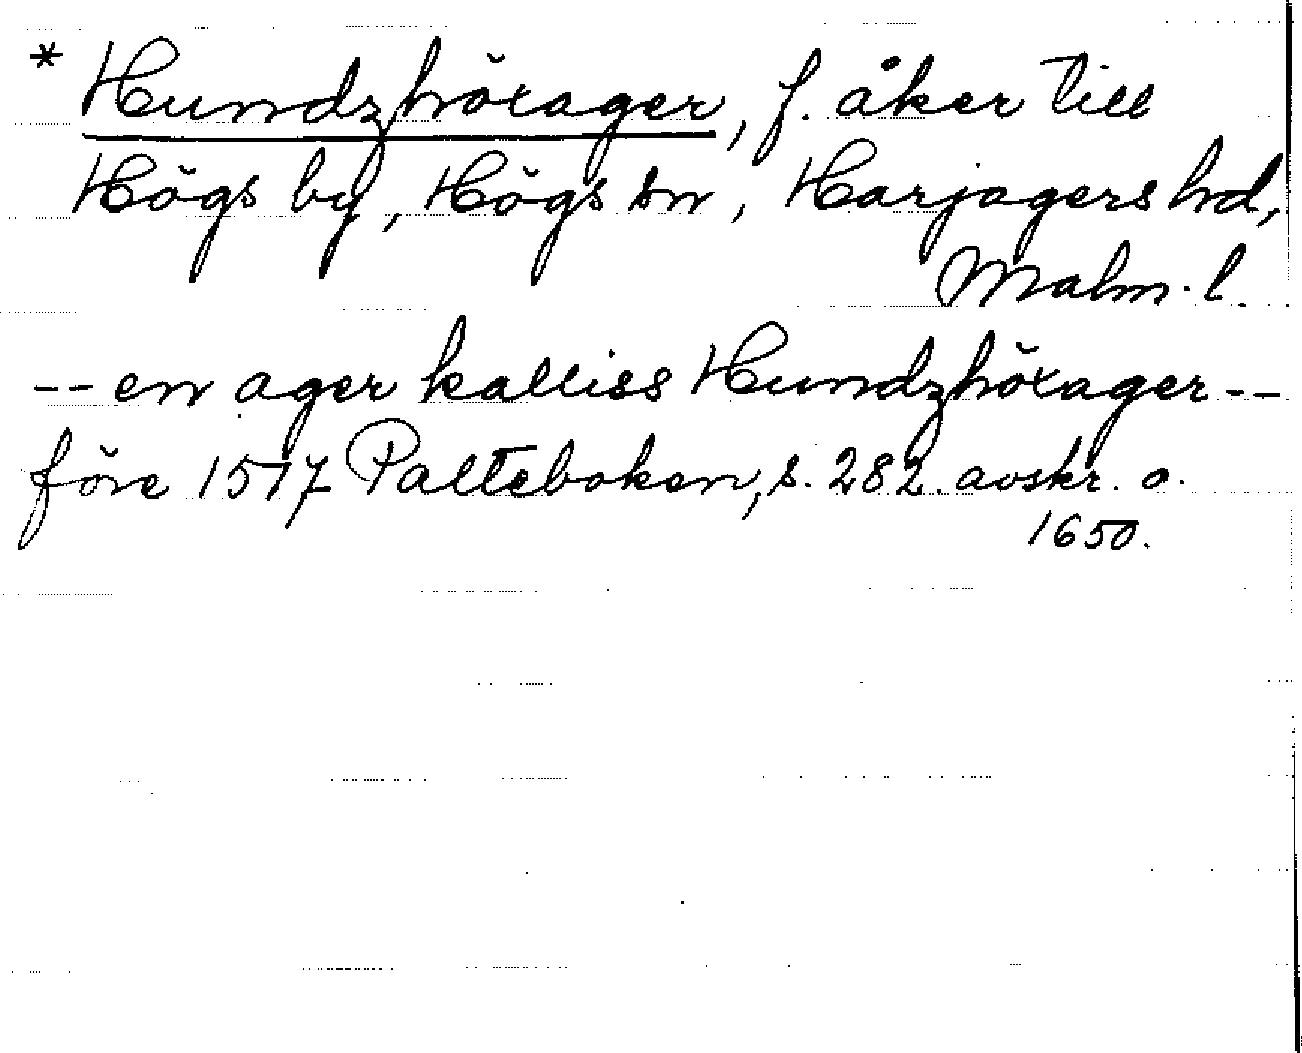 * Hundzhöxager, f. åker till
Högs by, Högs sn, Harjagers hd,
Malm. l.
-- en ager kalliss Hundzhöxager --
före 1517 Palteboken, s. 282. avskr. o.
1650.